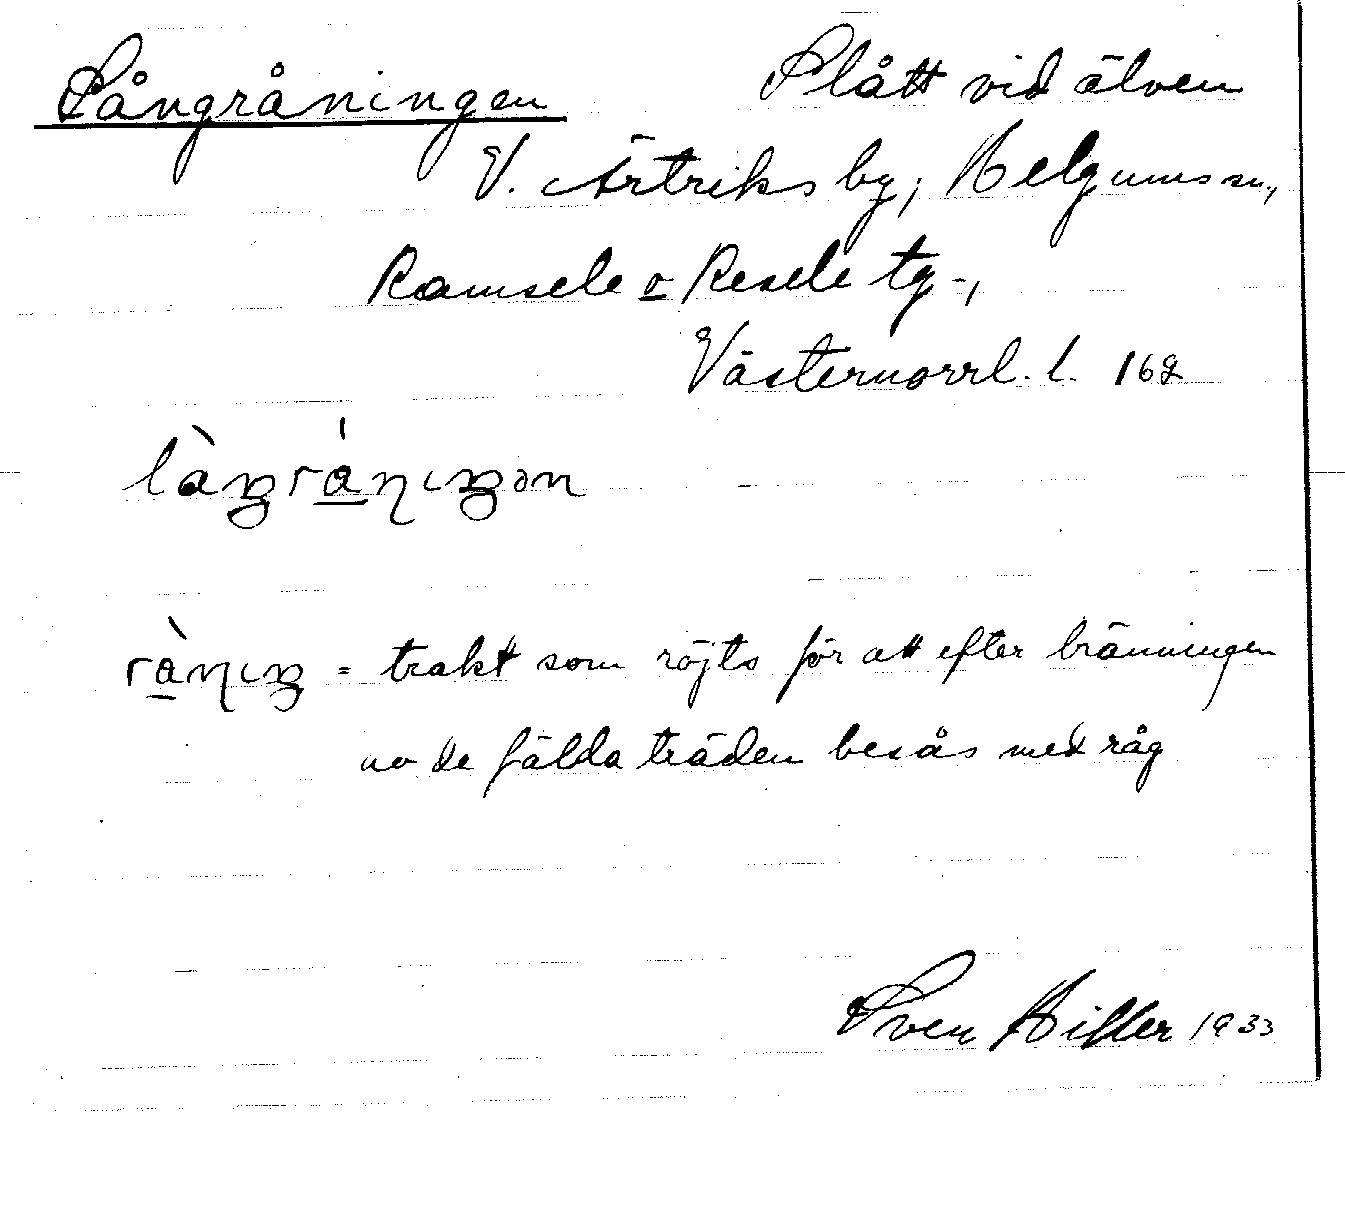 Långråningen
Slått vid älven
V. Ärtriks by, Helgums sn.,
Ramsele o Resele tg.,
Västernorrl. l. 162
làŋrǻꞃıŋən
rå̀ꞃıŋ = trakt som röjts för att efter bränningen
av de fälda träden besås med råg
Sven Hiller 1933